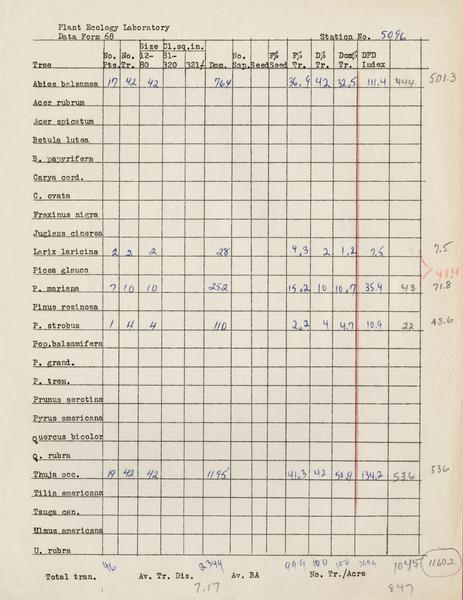 Plant Ecology Laboratory
Data Form 68 Station No. 5096
Size Cl.sq.in.
No. No. 12- 81- No. F% F% D% Dom% DFD
Tree Pts. Tr. 80 320 321/ Dom. Sap. Seed Seed Tr. Tr. Tr. Index
Abies balsamea 17 42 42 764 36.9 42 32.5 111.4 444 501.3
Acer rubrum
Acer spicatum
Betula lutea
B. papyrifera
Carya cord.
C. ovata
Fraxinus nigra
Juglans cinerea
Larix laricina 2 2 2 28 4.3 2 1.2 7.5 7.5
Picea glauca 43.4
P. mariana 7 10 10 252 15.2 10 10.7 35.9 43 71.8
Pinus resinosa
P. strobus 1 4 4 110 2.2 4 4.7 10.9 22 43.6
Pop.balsamifera
P. grand.
P. trem.
Prunus serotina
Pyrus americana
Quercus bicolor
Q. rubra
Thuja occ. 19 42 42 1195 41.3 42 50.9 134.2 536 536
Tilia americana
Tsuga can.
Ulmus americana
U. rubra
46 2349 99.9 100 100 1045 1160.2
Total tran. Av. Tr. Dis. 7.17 Av. BA No. Tr./Acre 847